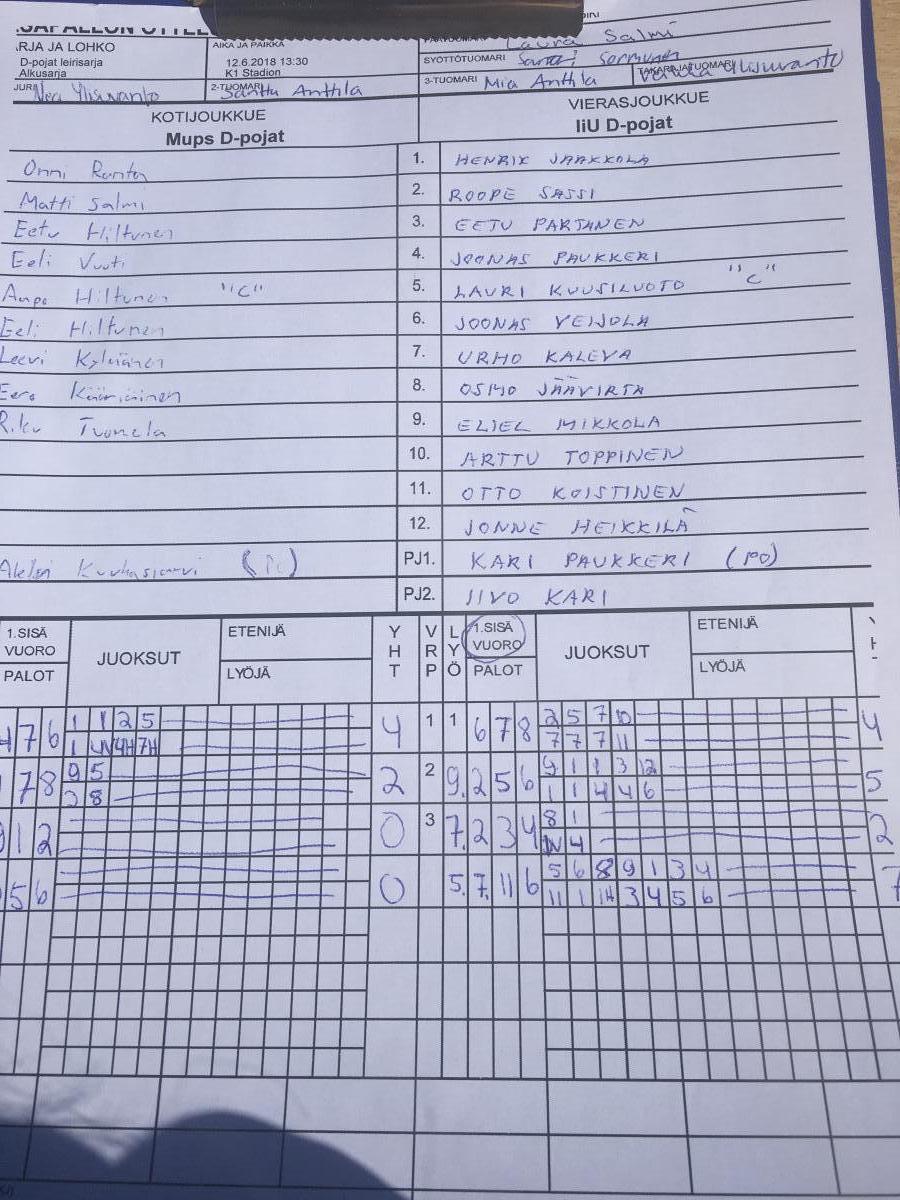 PESÄPALLON OTTELU
SARJA JA LOHKO
D-pojat leirisarja
Alkusarja
AIKA JA PAIKKA
12.6.2018 13:30
K1 Stadion
Laura Salmi
SYÖTTÖTUOMARI Santeri Sormunen
JURY Nea Ylisuvanto 2-TUOMARI Santtu Anttila 3-TUOMARI Mia Anttila TAKARAJATUOMARI Ylisuvanto
KOTIJOUKKUE VIERASJOUKKUE
Mups D-pojat IiU D-pojat
Onni Ranta 1. HENRIK JAAKKOLA
Matti Salmi 2. ROOPE SASSI
Eetu Hiltunen 3. EETU PARTANEN
Eeli Vuoti 4. JOONAS PAUKKERI
Aapo Hiltunen "C" 5. LAURI KUUSILUOTO "C"
Eeli Hiltunen 6. JOONAS VEIJOLA
Leevi Kylmänen 7. URHO KALEVA
Eero Kääriäinen 8. OSMO JÄÄVIRTA
Riku Tuomela 9. ELIEL MIKKOLA
10. ARTTU TOPPINEN
11. OTTO KOISTINEN
12. JONNE HEIKKILÄ
PJ1. KARI PAUKKERI (PO)
PJ2. IIVO KARI
1.SISÄ VUORO PALOT JUOKSUT ETENIJÄ LYÖJÄ YHT VRP LYÖ 1.SISÄ VUORO PALOT JUOKSUT ETENIJÄ LYÖJÄ
476 1 1 2 5 4 1 1 678 2 5 7 10 4
1 W 4H 7H 7 7 7 11
178 9 5 2 2 9. 256 9 1 1 3 12 5
8 1 1 4 4 6
912 0 3 7. 234 8 1 2
W 4
56 0 5. 7 11 6 5 6 8 9 1 3 4 7
11 1 1H 3 4 5 6